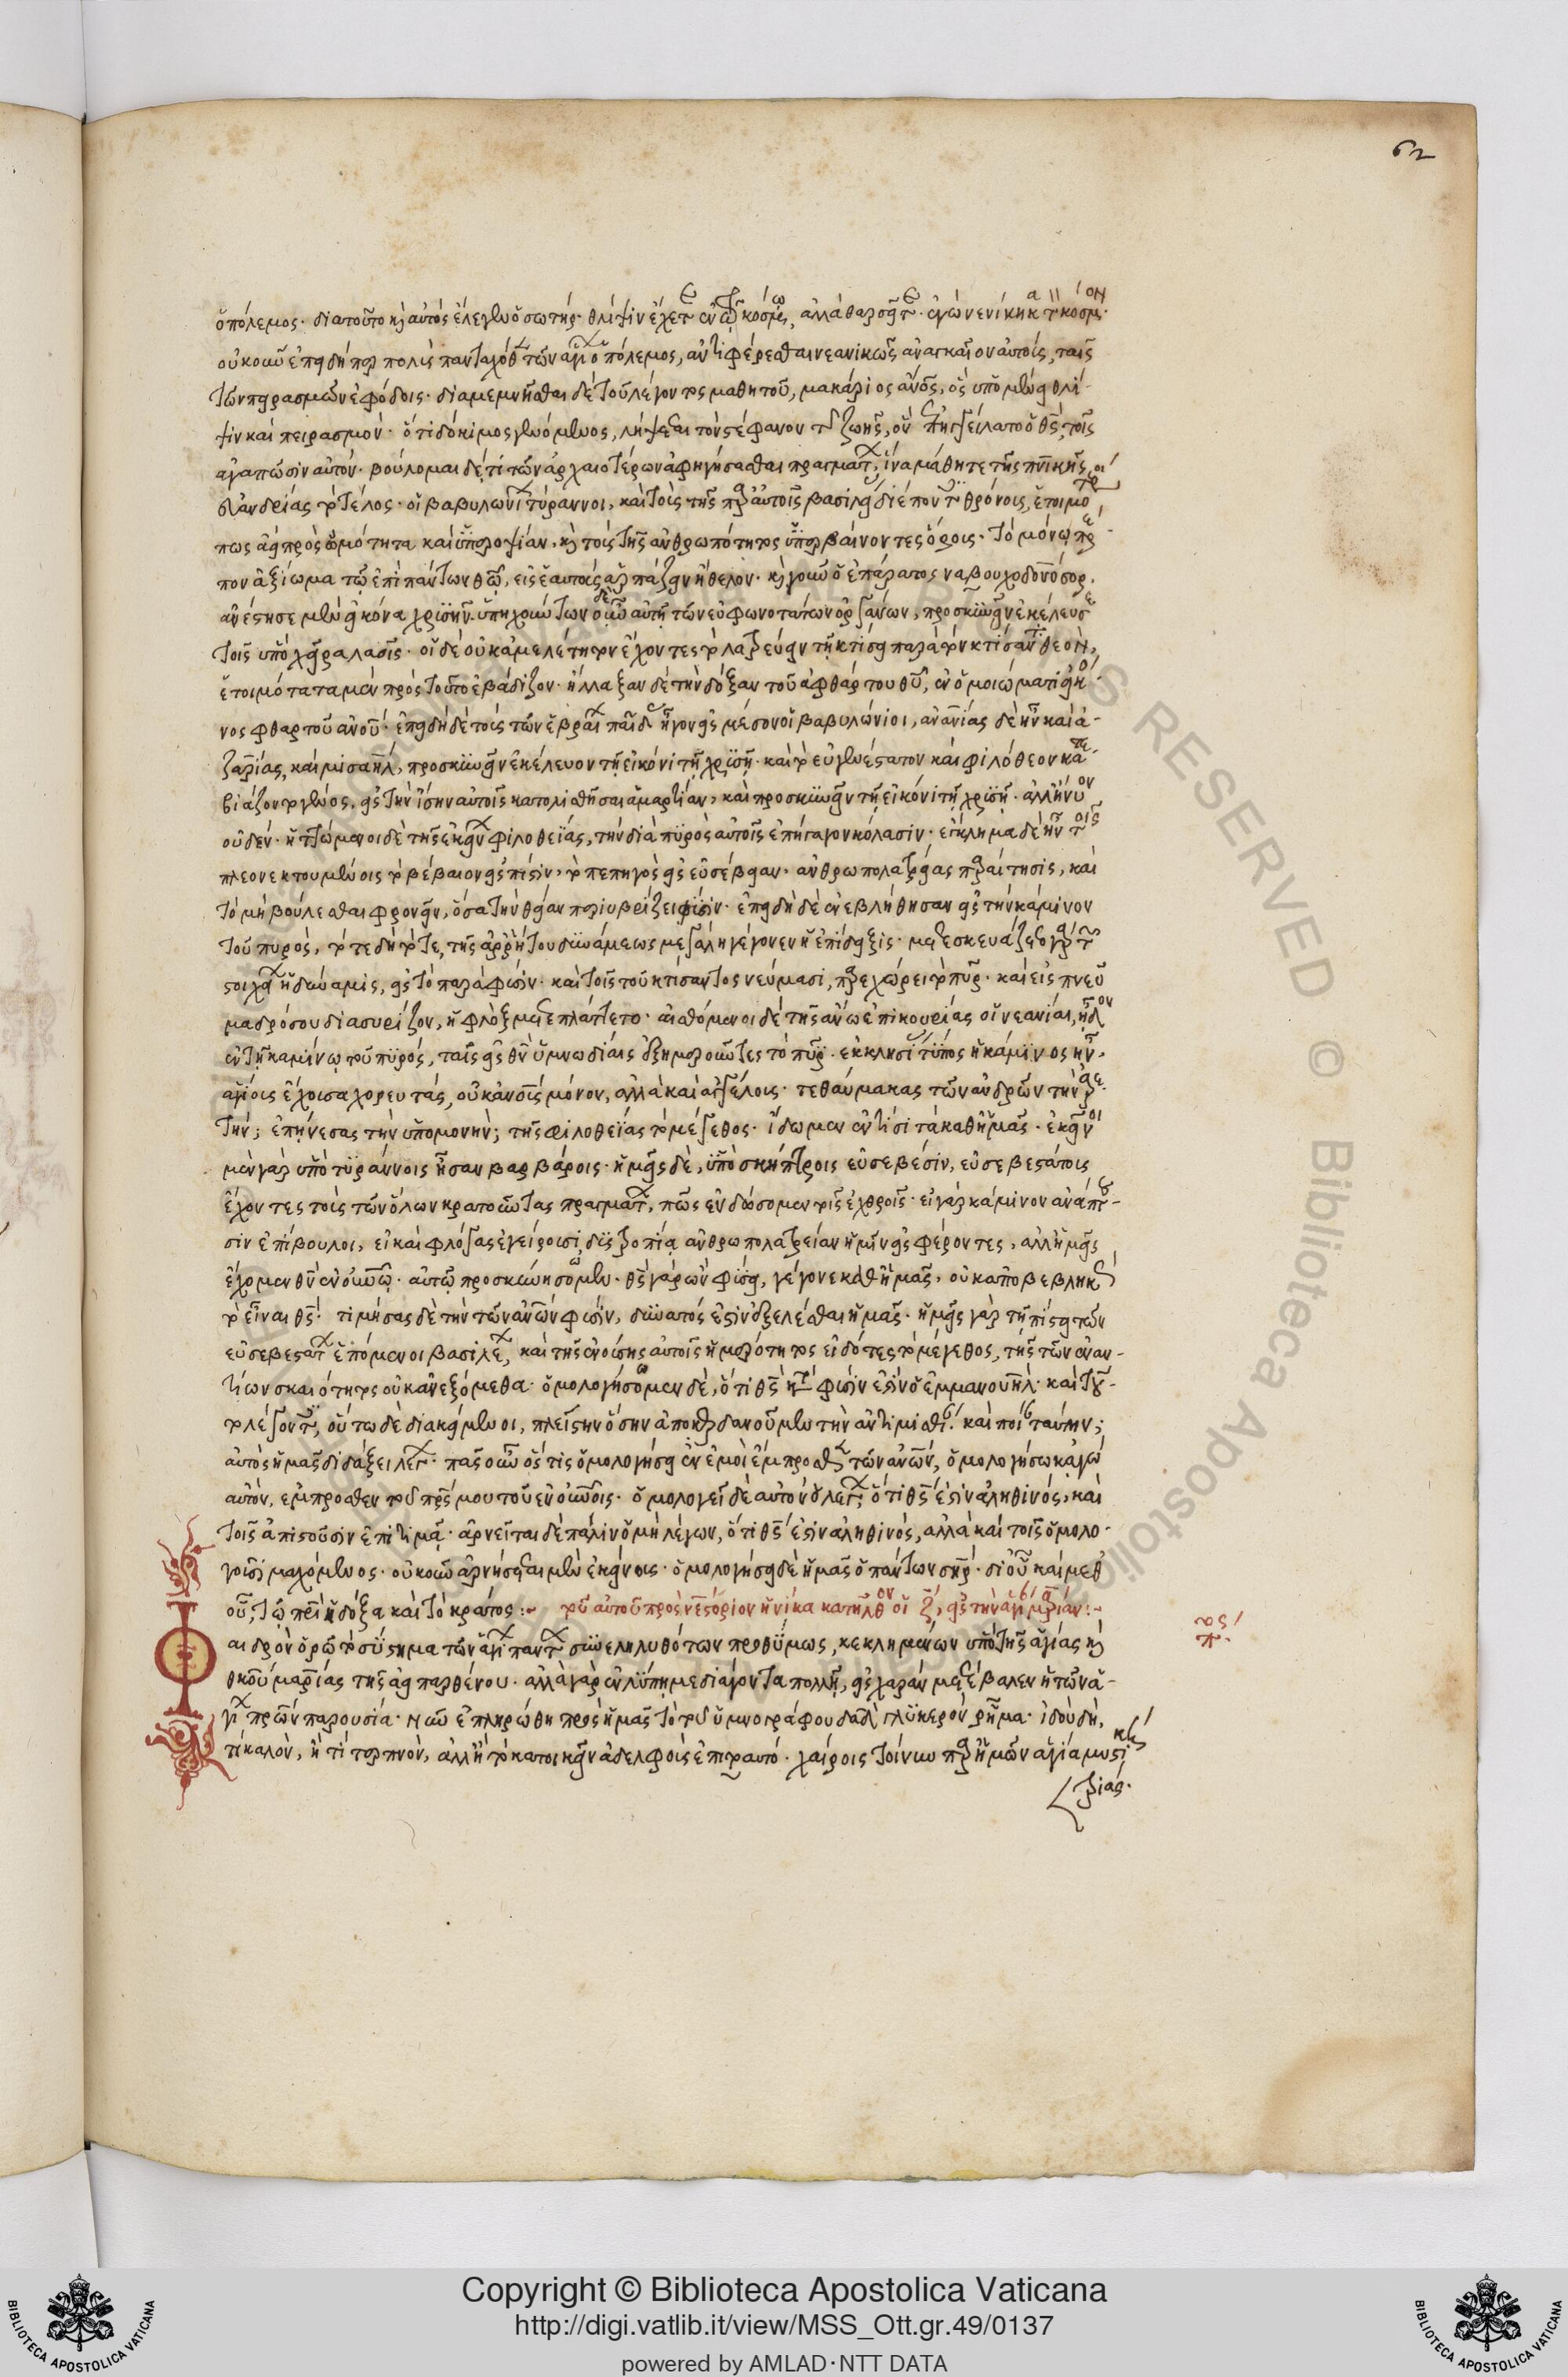 62
ὁ πόλεμος· διατοῦτο κὶ αὐτὸς ἔλεγεν ὁ σωτήρ· θλίψιν ἔχετε ἐν τῷ κόσμω, ἀλλὰ θαρσεῖτε· ἐγὼ νενίκηκα τὸν κόσμον·
οὐκοῦν ἐπειδήπερ πολὺς πανταχόθεν τῶν ἁγίων ὁ πόλεμος, ἀντιφέρεσθαι νεανικῶς ἀναγκαῖον αὐτοὺς, ταῖς
τῶν πειρασμῶν ἐφόδοις· διαμεμνῆσθαι δὲ τοῦ λέγοντος μαθητοῦ, μακάριος ἀνος, ὃς ὑπομένει θλί-
ψιν καὶ πειρασμόν· ὅτι δόκιμος γενόμενος, λήψεται τὸν στέφανον τῆς ζωῆς, ὃν ἐπηγγείλατο ὁ θς, τοῖς
ἀγαπῶσιν αὐτόν· βούλομαι δέ τι τῶν ἀρχαιοτέρων ἀφηγήσασθαι πραγμάτων, ἵνα μάθητε τῆς πνικῆς
εὐανδρίας τὸ τέλος· οἱ βαβυλωνίων τύραννοι, καὶ τοῖς τῆς παρ' αὐτοῖς βασιλείας διέποντες θρόνοις, ἑτοιμο
πως ἀεὶ πρὸς ὠμότητα καὶ ὑπεροψίαν, κὶ τοὺς τῆς ἀνθρωπότητος ὑπερβαίνοντες ὅρους· τὸ μόνῳ πρέ
πον ἀξίωμα τῷ ἐπὶ πάντων θῷ, εἰς ἑαυτοὺς ἁρπάζειν ἤθελον· κὶ γοῦν ὁ ἐπάρατος ναβουχοδονόσορ,
ἀνέστησε μὲν εἰκόνα χρυσῆν· ὑπηχούντων δὲ ὁμοῦ αὐτῇ τῶν εὐφωνοτάτων ὀργάνων, προσκυνεῖν ἐκέλευσε
τοῖς ὑπὸ χεῖρα λαοῖς· οἱ δὲ οὐκ ἀμελέτητον ἔχοντες τὸ λατρεύειν τῇ κτίσει παρὰ τὸν κτίσαντα θεόν,
ἑτοιμότατα μὲν πρὸς τοῦτο ἐβάδιζον· ἤλλαξαν δὲ τὴν δόξαν τοῦ ἀφθάρτου θυ, ἐν ὁμοιώματι εἰκό
νος φθαρτοῦ ἀνου· ἐπειδὴ δὲ τοὺς τῶν ἑβραίων παῖδας ἦγον εἰς μέσον οἱ βαβυλώνιοι, ἀνανίας δὲ ἦν καὶ ἀ-
ζαρίας, καὶ μισαὴλ, προσκυνεῖν ἐκέλευον τῇ εἰκόνι τῇ χρυσῇ· καὶ τὸ εὐγενέστατον καὶ φιλόθεον κατε-
βιάζοντο γένος, εἰς τὴν ἴσην αὐτοῖς κατολισθῆσαι ἁμαρτίαν, καὶ προσκυνεῖν τῇ εἰκόνι τῇ χρυσῇ· ἀλλ' ἤνυον
οὐδέν· ἡττώμενοι δὲ τῆς ἐκείνων φιλοθεΐας, τὴν διὰ πυρὸς αὐτοῖς ἐπήγαγον κόλασιν· ἔγκλημα δὲ ἦν τοῖς
πλεονεκτουμένοις τὸ βέβαιον εἰς πίστιν, τὸ πεπηγὸς εἰς εὐσέβειαν· ἀνθρωπολατρείας παραίτησις, καὶ
τὸ μὴ βούλεσθαι φρονεῖν, ὅσα τὴν θείαν περιυβρίζει φύσιν· ἐπειδὴ δὲ ἐνεβλήθησαν εἰς τὴν κάμινον
τοῦ πυρὸς, τότε δὴ τότε, τῆς ἀρρήτου δυνάμεως μεγάλη γέγονεν ἡ ἐπίδειξις· μετεσκευάζετο γὰρ τῶν
στοιχείων ἡ δύναμις, εἰς τὸ παρὰ φύσιν· καὶ τοῖς τοῦ κτίσαντος νεύμασι, παρεχώρει τὸ πῦρ· καὶ εἰς πνεῦ
μα δρόσου διασυρίζον, ἡ φλὸξ μετεπλάττετο· αἰσθόμενοι δὲ τῆς ἄνω ἐπικουρίας οἱ νεανίαι, ᾖδον
ἐν τῇ καμίνῳ τοῦ πυρός, ταῖς εἰς θν ὑμνῳδίαις ἐξημεροῦντες τὸ πῦρ· ἐκκλησίας τύπος ἡ κάμινος ἦν,
ἁγίους ἔχουσα χορευτάς, οὐκ ἀνους μόνον, ἀλλὰ καὶ ἀγγέλους· τεθαύμακας τῶν ἀνδρῶν τὴν ἀρε
τήν; ἐπῄνεσας τὴν ὑπομονὴν; τῆς φιλοθεΐας τὸ μέγεθος· ἴδωμεν ἐν τίσι τὰ καθ' ἡμᾶς· ἐκεῖνοι
μὲν γὰρ ὑπὸ τυράννοις ἦσαν βαρβάροις· ἡμεῖς δὲ, ὑπὸ σκήπτροις εὐσεβέσιν, εὐσεβεστάτοις
ἔχοντες τοὺς τῶν ὅλων κρατοῦντας πραγμάτων, πῶς ἐνδώσομεν τοῖς ἐχθροῖς· εἰ γὰρ κάμινον ἀνάπτου-
σιν ἐπίβουλοι, εἰ καὶ φλόγας ἐγείρουσι, δυστροπίᾳ ἀνθρωπολατρείαν ἡμῖν εἰσφέροντες, ἀλλ' ἡμεῖς
ἔχομεν θν ἐν οὐνῷ· αὐτῷ προσκυνήσωμεν· θς γὰρ ὢν φύσει, γέγονε καθ' ἡμᾶς, οὐκ ἀποβεβληκὼς
τὸ εἶναι θς· τιμήσας δὲ τὴν τῶν ἀνων φύσιν, δυνατός ἐστιν ἐξελέσθαι ἡμᾶς· ἡμεῖς γὰρ τῇ πίστει τῶν
εὐσεβεστάτων ἑπόμενοι βασιλέων, καὶ τῆς ἐνούσης αὐτοῖς ἡμερότητος εἰδότες τὸ μέγεθος, τῆς τῶν ἐναν-
τίων σκαιότητος οὐκ ἀνεξόμεθα· ὁμολογήσωμεν δὲ, ὅτι θς κατὰ φύσιν ἐστὶν ὁ ἐμμανουήλ· καὶ τοῦ-
το λέγοντες, οὕτω δὲ διακείμενοι, πλείστην ὅσην ἀποκερδανοῦμεν τὴν ἀντιμισθίαν· καὶ ποίαν ταύτην;
αὐτὸς ἡμᾶς διδάξει λέγων· πᾶς οὖν ὅστις ὁμολογήσει ἐν ἐμοὶ ἔμπροσθεν τῶν ἀνων, ὁμολογήσω κἀγὼ
αὐτόν, ἔμπροσθεν τοῦ πρς μου τοῦ ἐν οὐνοῖς· ὁμολογεῖ δὲ αὐτὸν ὁ λέγων, ὅτι θς ἐστὶν ἀληθινός, καὶ
τοῖς ἀπιστοῦσιν ἐπιτιμᾷ· ἀρνεῖται δὲ πάλιν ὁ μὴ λέγων, ὅτι θς ἐστὶν ἀληθινός, ἀλλὰ καὶ τοῖς ὁμολο-
γοῦσι μαχόμενος· οὐκοῦν ἀρνήσεται μὲν ἐκείνους· ὁμολογήσει δὲ ἡμᾶς ὁ πάντων σηρ· δι' οὗ καὶ μεθ'
οὗ, τῷ πρι ἡ δόξα καὶ τὸ κράτος :- τοῦ αὐτοῦ πρὸς νεστόριον ἡνίκα κατῆλθον οἱ ζ, εἰς τὴν ἁγίαν μαρίαν :-
αιδρὸν ὁρῶ τὸ σύστημα τῶν ἁγίων πάντων συνεληλυθότων προθύμως, κεκλημένων ὑπὸ τῆς ἁγίας κὶ
θκου μαρίας τῆς ἀειπαρθένου· ἀλλὰ γὰρ ἐν λύπῃ με διάγοντα πολλῇ, εἰς χαρὰν μετέβαλεν ἡ τῶν ἁ-
γίων πρων παρουσία· νῦν ἐπληρώθη πρὸς ἡμᾶς τὸ τοῦ ὑμνογράφου δαδ γλυκερὸν ῥῆμα· ἰδοὺ δὴ,
τί καλὸν, ἢ τί τερπνὸν, ἀλλ' ἢ τὸ κατοικεῖν ἀδελφοὺς ἐπιτοαυτό· χαίροις τοίνυν παρ' ἡμῶν ἁγία μυστικὴ
τριάς·
Copyright © Biblioteca Apostolica Vaticana
http://digi.vatlib.it/view/MSS_Ott.gr.49/0137
powered by AMLAD·NTT DATA